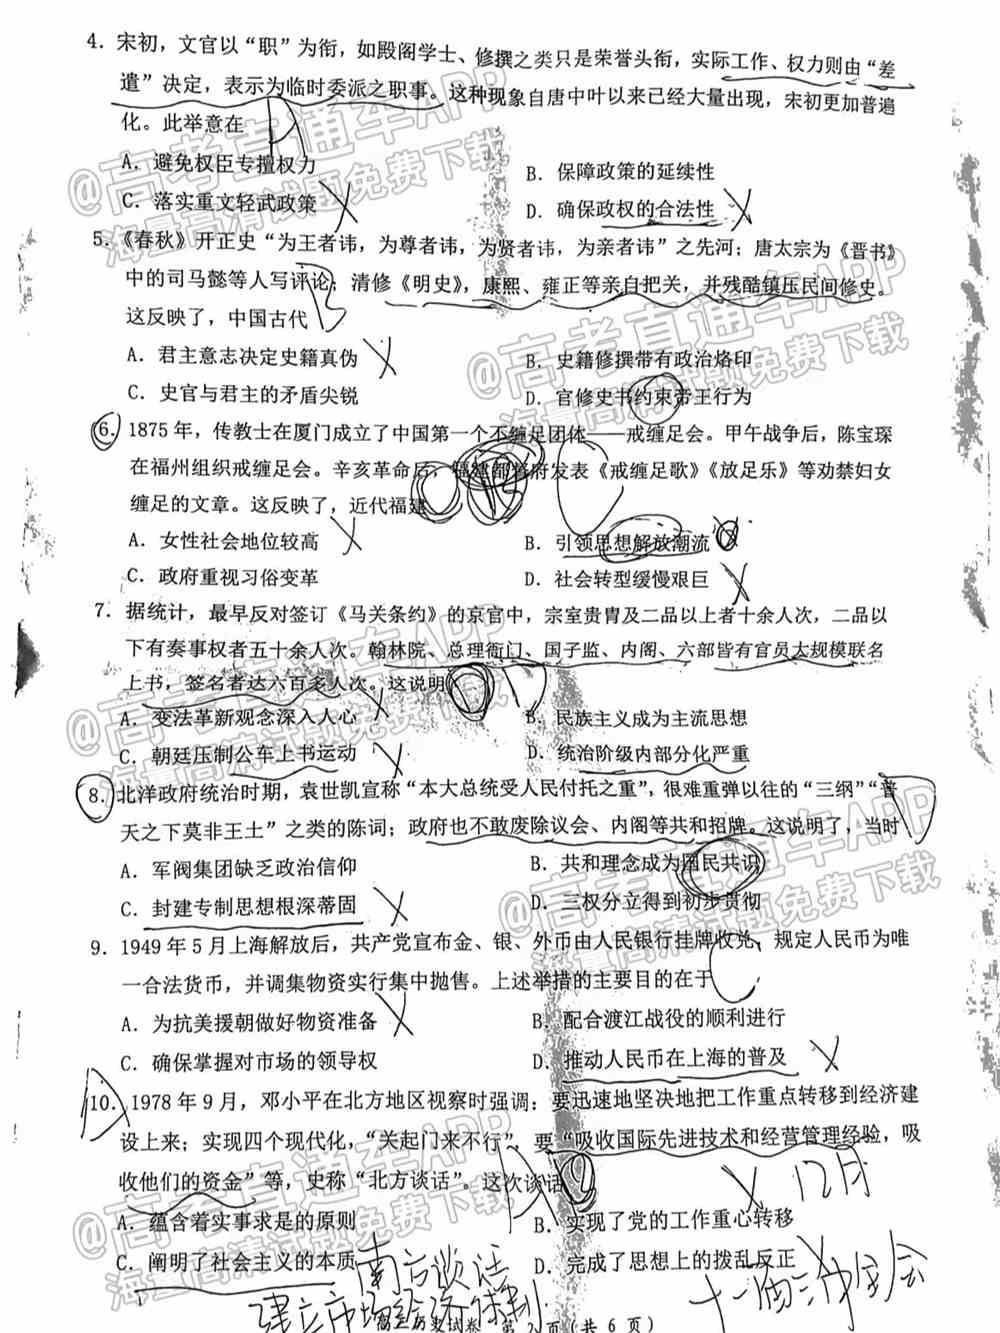 4. 宋初，文官以“职”为衔，如殿阁学士、修撰之类只是荣誉头衔，实际工作、权力则由“差
遣”决定，表示为临时委派之职事。这种现象自唐中叶以来已经大量出现，宋初更加普遍
化。此举意在
A. 避免权臣专擅权力
B. 保障政策的延续性
C. 落实重文轻武政策
D. 确保政权的合法性
5.《春秋》开正史“为王者讳，为尊者讳，为贤者讳，为亲者讳”之先河；唐太宗为《晋书》
中的司马懿等人写评论；清修《明史》，康熙、雍正等亲自把关，并残酷镇压民间修史。
这反映了，中国古代
A. 君主意志决定史籍真伪
B. 史籍修撰带有政治烙印
C. 史官与君主的矛盾尖锐
D. 官修史书约束帝王行为
6. 1875年，传教士在厦门成立了中国第一个不缠足团体——戒缠足会。甲午战争后，陈宝琛
在福州组织戒缠足会。辛亥革命后，福建都督府发表《戒缠足歌》《放足乐》等劝禁妇女
缠足的文章。这反映了，近代福建
A. 女性社会地位较高
B. 引领思想解放潮流
C. 政府重视习俗变革
D. 社会转型缓慢艰巨
7. 据统计，最早反对签订《马关条约》的京官中，宗室贵胄及二品以上者十余人次，二品以
下有奏事权者五十余人次。翰林院、总理衙门、国子监、内阁、六部皆有官员大规模联名
上书，签名者达六百多人次。这说明
A. 变法革新观念深入人心
B. 民族主义成为主流思想
C. 朝廷压制公车上书运动
D. 统治阶级内部分化严重
8. 北洋政府统治时期，袁世凯宣称“本大总统受人民付托之重”，很难重弹以往的“三纲”“普
天之下莫非王土”之类的陈词；政府也不敢废除议会、内阁等共和招牌。这说明了，当时
A. 军阀集团缺乏政治信仰
B. 共和理念成为国民共识
C. 封建专制思想根深蒂固
D. 三权分立得到初步贯彻
9. 1949年5月上海解放后，共产党宣布金、银、外币由人民银行挂牌收兑，规定人民币为唯
一合法货币，并调集物资实行集中抛售。上述举措的主要目的在于
A. 为抗美援朝做好物资准备
B. 配合渡江战役的顺利进行
C. 确保掌握对市场的领导权
D. 推动人民币在上海的普及
10. 1978年9月，邓小平在北方地区视察时强调：要迅速地坚决地把工作重点转移到经济建
设上来；实现四个现代化，“关起门来不行”，要“吸收国际先进技术和经营管理经验，吸
收他们的资金”等，史称“北方谈话”。这次谈话
12月
A. 蕴含着实事求是的原则
B. 实现了党的工作重心转移
C. 阐明了社会主义的本质
D. 完成了思想上的拨乱反正
南方谈话
十一届三中全会
建立市场经济体制
第2页（共6页）
@高考直通车APP
海量高清试题免费下载
@高考直通车APP
海量高清试题免费下载
@高考直通车APP
海量高清试题免费下载
@高考直通车APP
海量高清试题免费下载
@高考直通车APP
海量高清试题免费下载